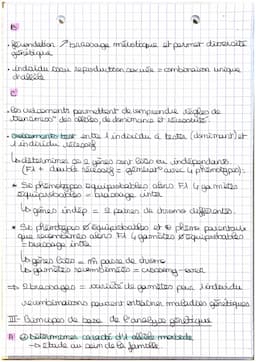 b)
• fécondation ↗ brassage méiotique et permet diversité
génétique
• individu issu reproduction sexuée = combinaison unique
d'allèles
c)
• les croisements permettent de comprendre règles de
transmission des allèles, de dominance et récessivité.
• croisements test entre 1 individu à tester (dominant) et
1 individu récessif
↳ déterminer se 2 gènes sont liés ou indépendants.
(F1 + double récessif = génération avec 4 phénotypes).
* Si phénotypes équiprobables alors F1 4 gamètes
équiprobables = brassage inter
↳ gènes indép = 2 paires de chromo différentes.
* Si phénotypes ≠ équiprobables et ⊕ phéno parentaux
que recombinés alors F1 4 gamètes ≠ équiprobables
= brassage intra
↳ gènes liés = m̂ paire de chromo
↳ gamètes recombinées = crossing-over
↳ 2 brassages = variété de gamètes pour 1 individu
recombinaisons peuvent entraîner maladies génétiques
III- Principes de base de l'analyse génétique
A) ⓐ Déterminer caract. d'1 allèle morbide
↳ étude au sein de la famille.